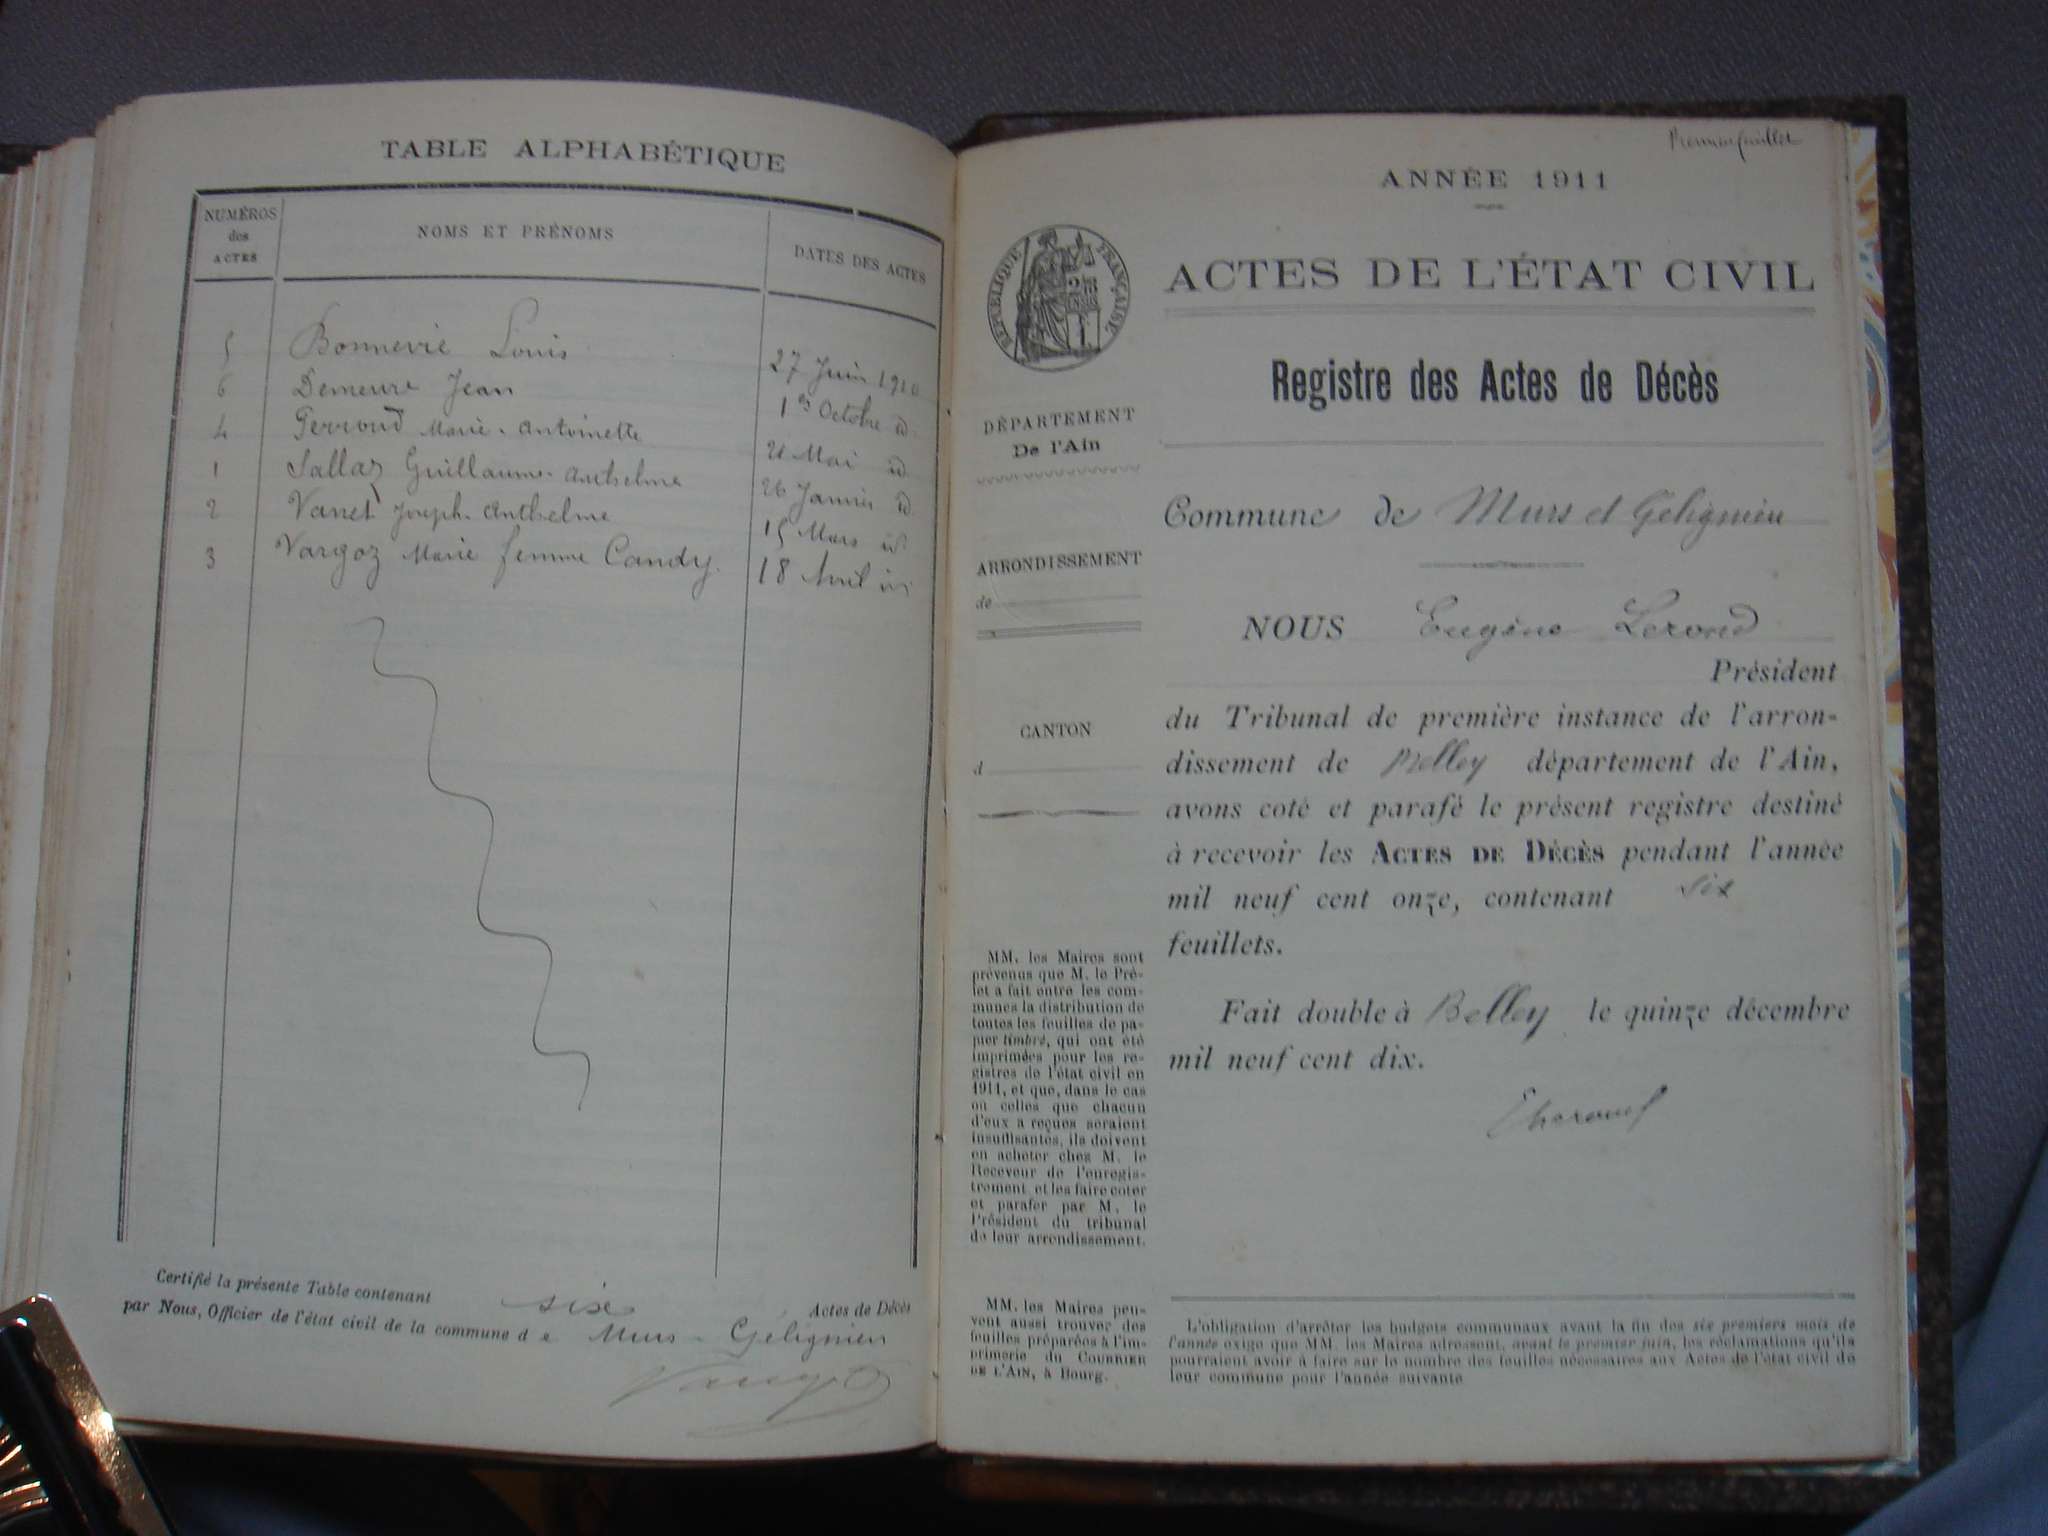 TABLE ALPHABÉTIQUE
NUMÉROS
des
ACTES
NOMS ET PRÉNOMS
DATES DES ACTES
5 Bonnevie Louis 27 Juin 1910
6 Demeure Jean 1er Octobre id
4 Perroud Marie-Antoinette 21 Mai id
1 Sallaz Guillaume-Anthelme 26 Janvier id
2 Vanet Joseph-Anthelme 15 Mars id
3 Vargoz Marie femme Candy. 18 Avril id
Certifié la présente Table contenant six Actes de Décès
par Nous, Officier de l'état civil de la commune d e Murs-Gélignieu
Premier feuillet
ANNÉE 1911
RÉPUBLIQUE FRANÇAISE
ACTES DE L'ÉTAT CIVIL
Registre des Actes de Décès
DÉPARTEMENT
De l'Ain
Commune de Murs et Gélignieu
ARRONDISSEMENT
de
NOUS Eugène
Président
CANTON
d
du Tribunal de première instance de l'arron-
dissement de Belley département de l'Ain,
avons coté et parafé le présent registre destiné
à recevoir les ACTES DE DÉCÈS pendant l'année
mil neuf cent onze, contenant six
feuillets.
Fait double à Belley le quinze décembre
mil neuf cent dix.
MM. les Maires sont
prévenus que M. le Pré-
fet a fait entre les com-
munes la distribution de
toutes les feuilles de pa-
pier timbré, qui ont été
imprimées pour les re-
gistres de l'état civil en
1911, et que, dans le cas
où celles que chacun
d'eux a reçues seraient
insuffisantes, ils doivent
en acheter chez M. le
Receveur de l'enregis-
trement et les faire coter
et parafer par M. le
Président du tribunal
de leur arrondissement.
MM. les Maires peu-
vent aussi trouver des
feuilles préparées à l'im-
primerie du COURRIER
DE L'AIN, à Bourg.
L'obligation d'arrêter les budgets communaux avant la fin des six premiers mois de
l'année exige que MM. les Maires adressent, avant le premier juin, les réclamations qu'ils
pourraient avoir à faire sur le nombre des feuilles nécessaires aux Actes de l'état civil de
leur commune pour l'année suivante